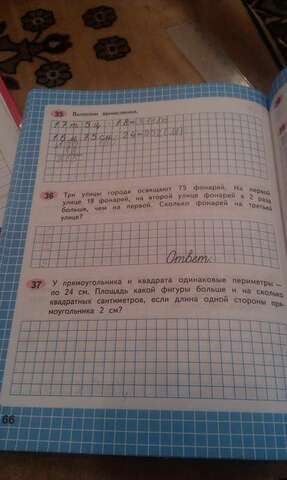 35 Выполни вычисления.
36 Три улицы города освещают 75 фонарей. На первой
улице 18 фонарей, на второй улице фонарей в 2 раза
больше, чем на первой. Сколько фонарей на третьей
улице?
Ответ:
37 У прямоугольника и квадрата одинаковые периметры —
по 24 см. Площадь какой фигуры больше и на сколько
квадратных сантиметров, если длина одной стороны пря-
моугольника 2 см?
66